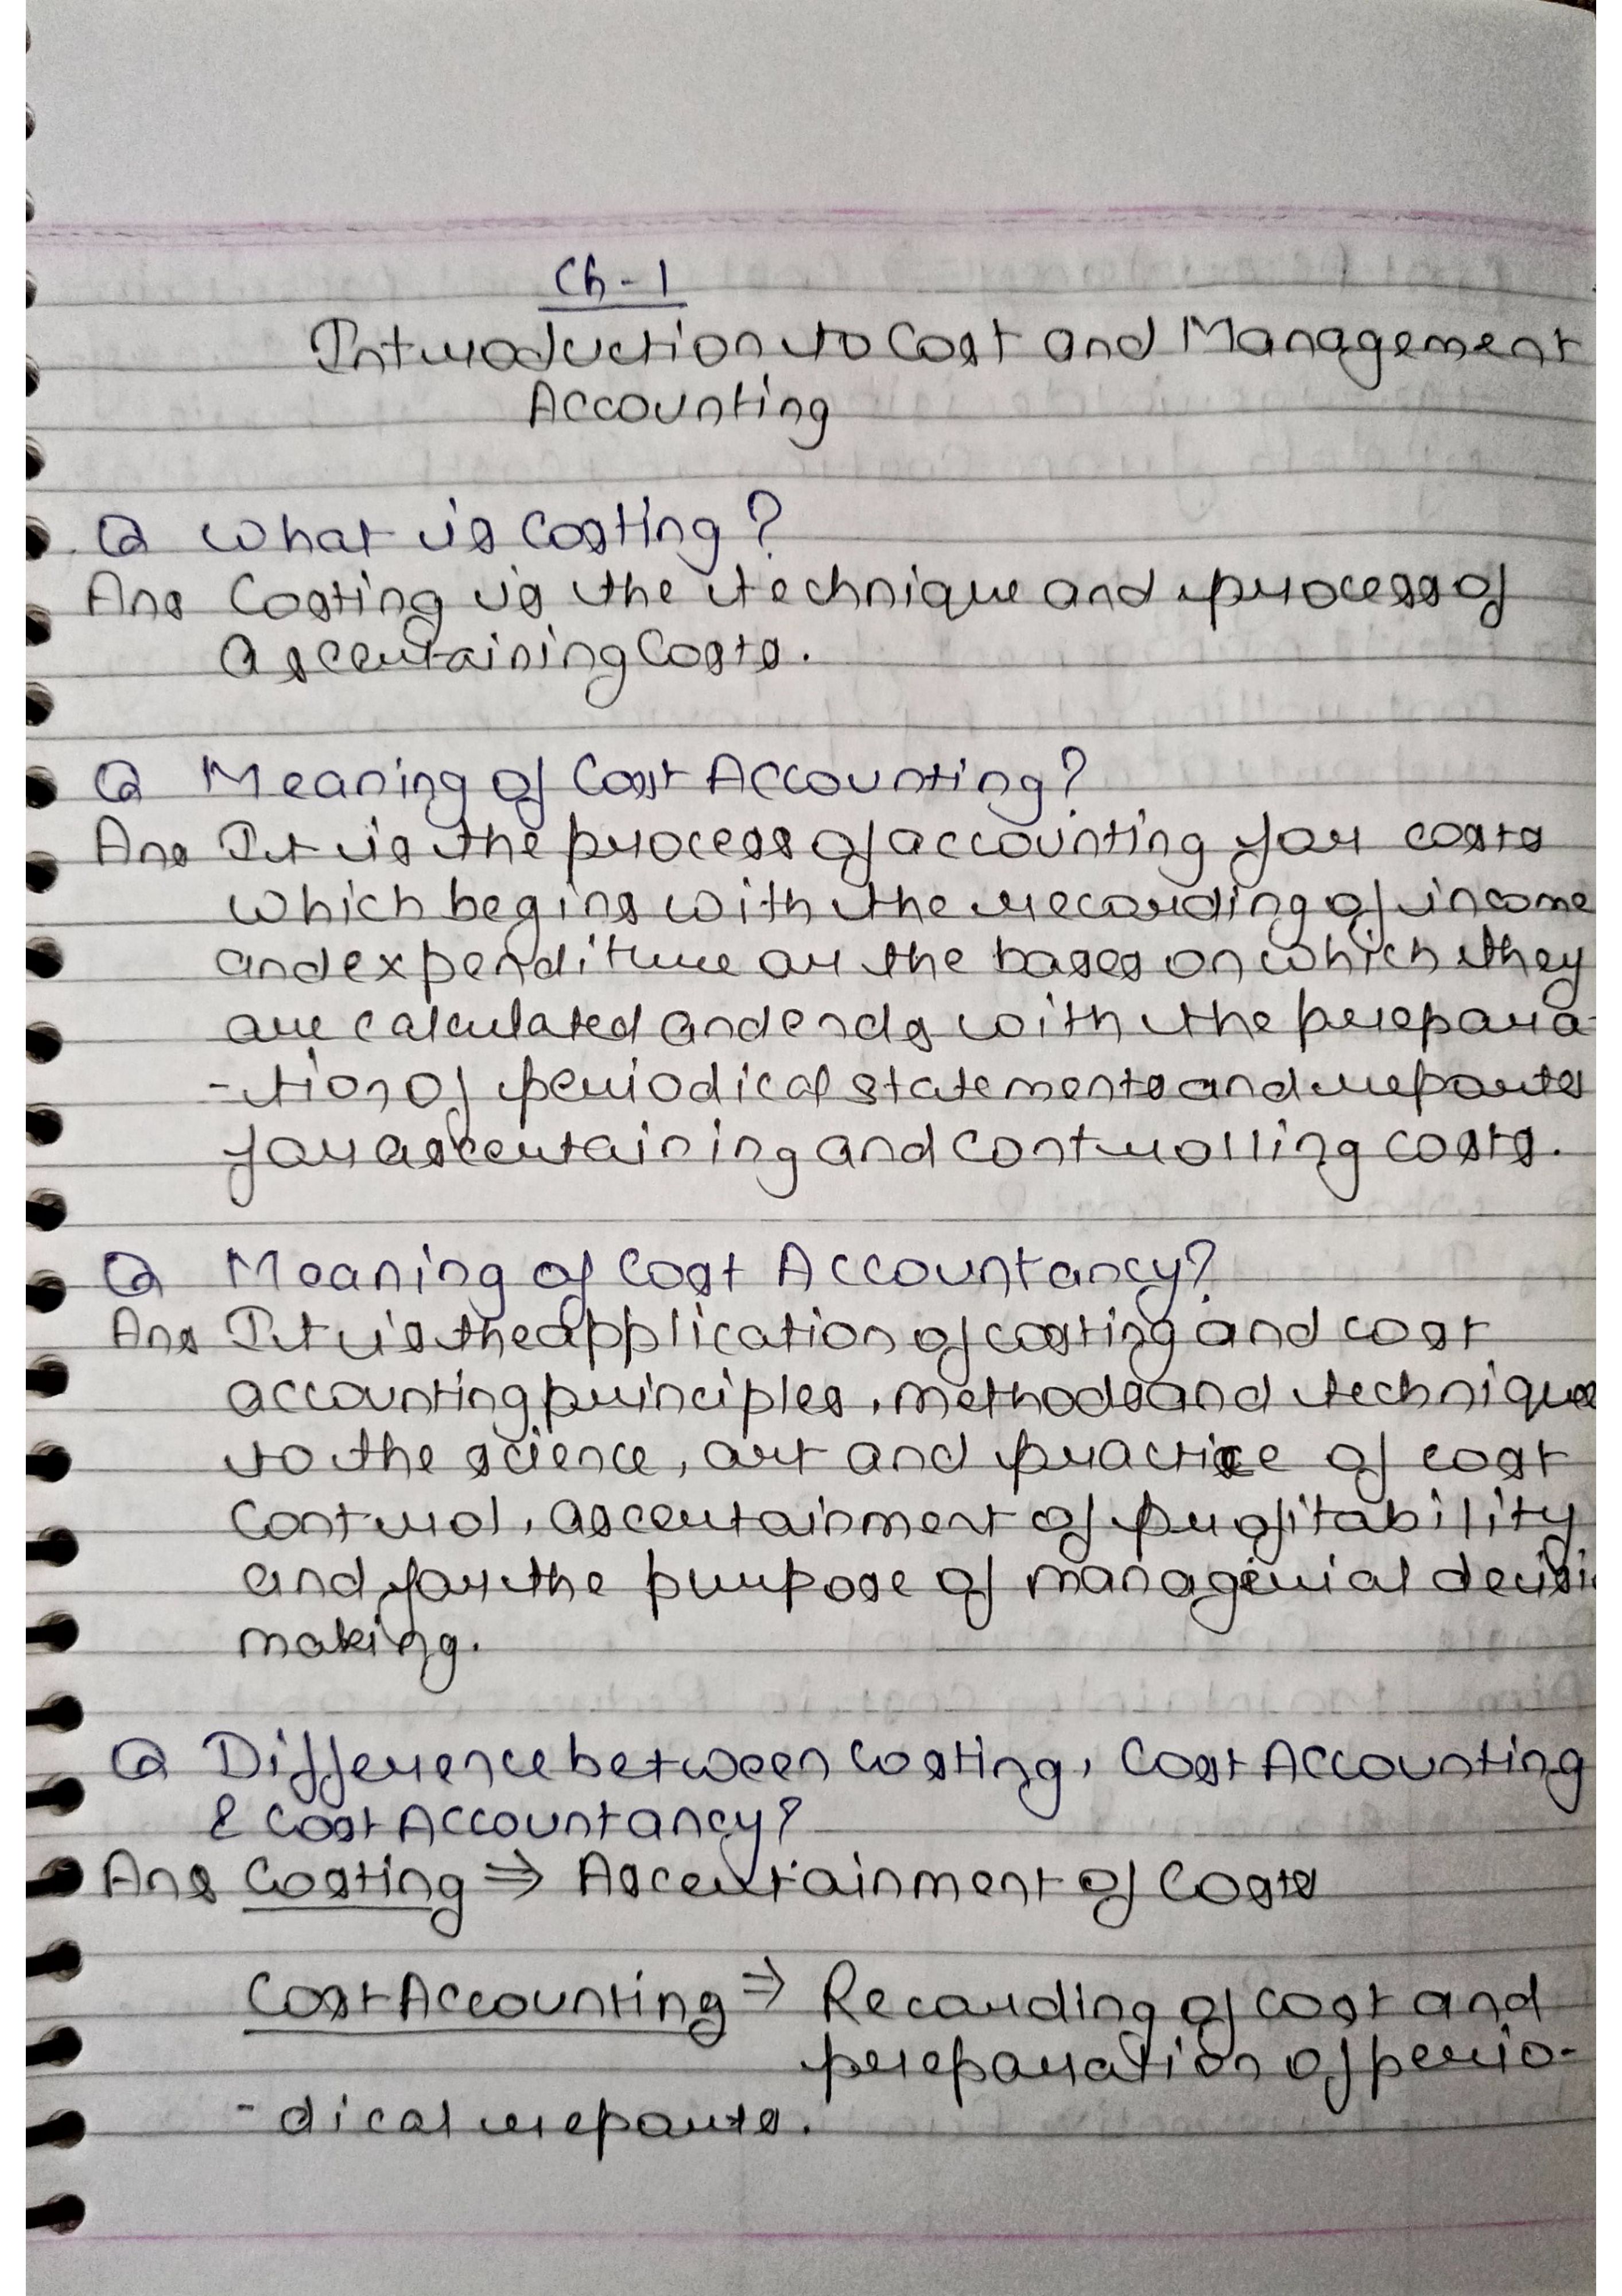 Ch-1
Introduction to Cost and Management
Accounting
Q What is Costing?
Ans Costing is the technique and process of
ascertaining Costs.
Q Meaning of Cost Accounting?
Ans It is the process of accounting for costs
which begins with the recording of income
and expenditure or the bases on which they
are calculated and ends with the prepara-
-tion of periodical statements and reports
for ascertaining and controlling costs.
Q Meaning of Cost Accountancy?
Ans It is the application of costing and cost
accounting principles, methods and technique
to the science, art and practice of cost
control, ascertainment of profitability
and for the purpose of managerial decisi
making.
Q Difference between Costing, Cost Accounting
& Cost Accountancy?
Ans Costing ⇒ Ascertainment of Costs
Cost Accounting ⇒ Recording of cost and
preparation of perio-
-dical reports.